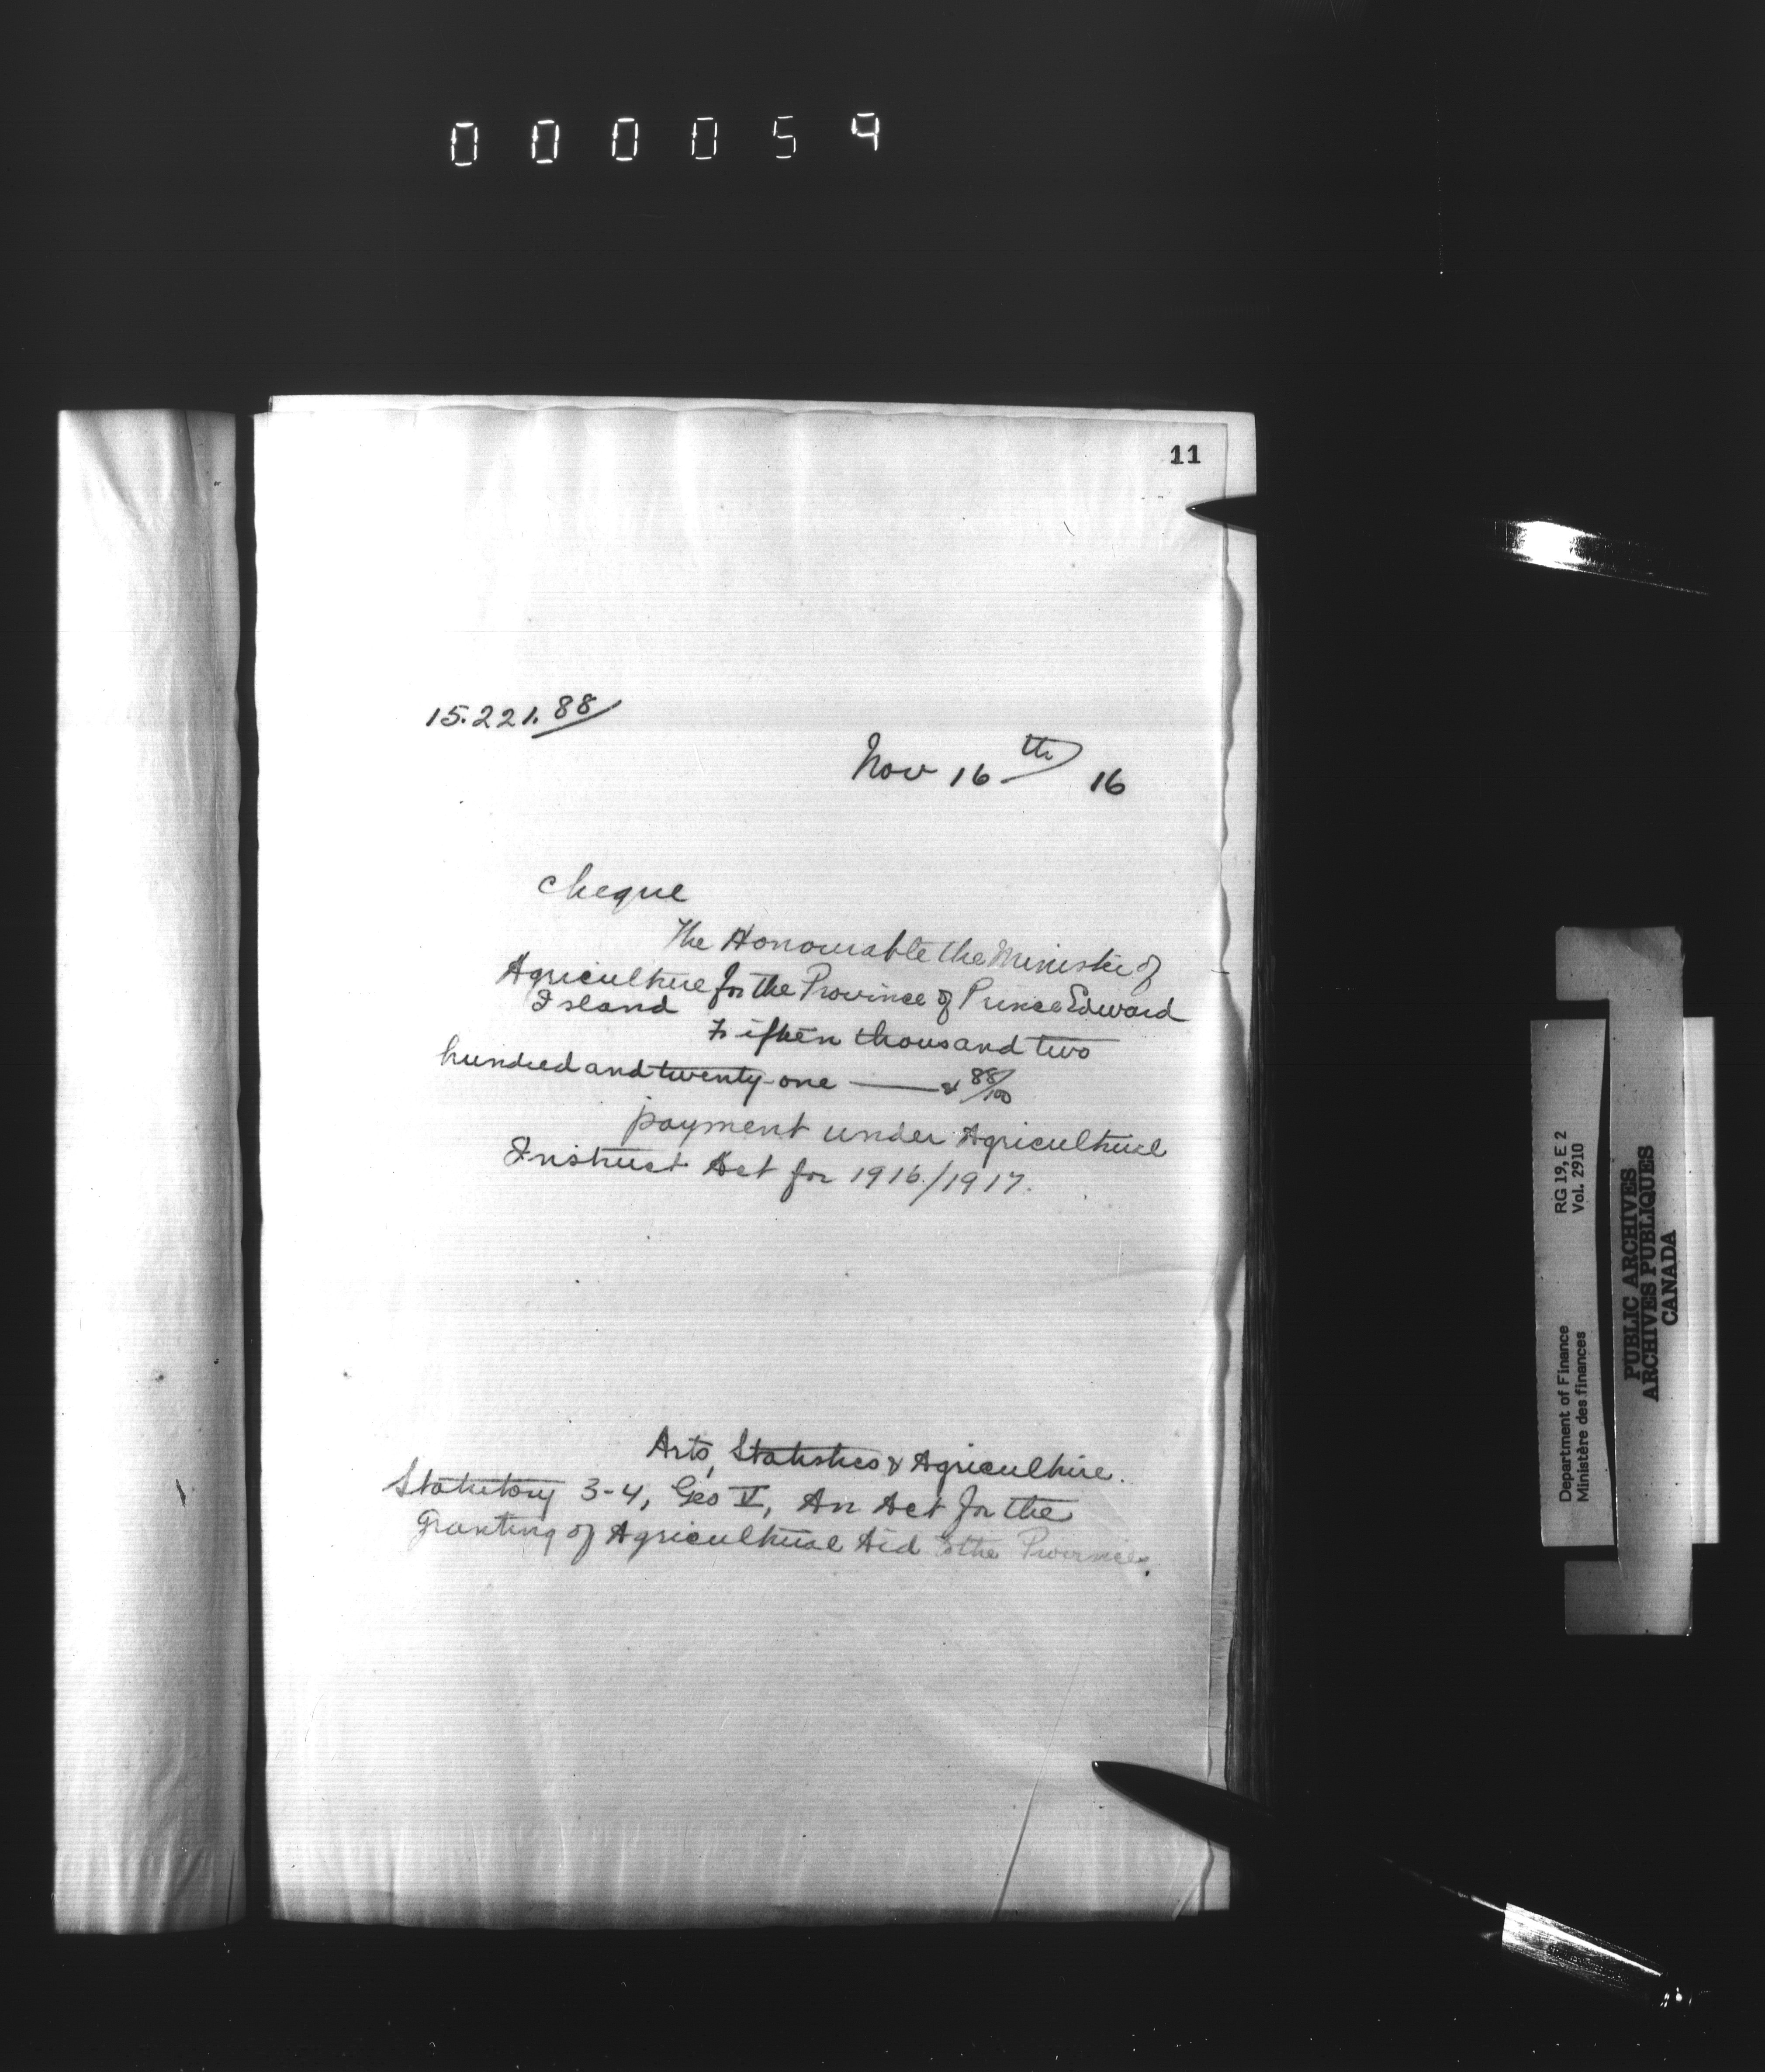 000059
11
15.221.88
Nov 16th 16
cheque
The Honourable the Minister of
Agriculture for the Province of Prince Edward
Island
Fifteen thousand two
hundred and twenty-one — & 88/100
payment under Agricultural
Instruct Act for 1916/1917.
Arts, Statistics & Agriculture.
Statutory 3-4, Geo V, An Act for the
Granting of Agricultural Aid to the Provinces.
Department of Finance RG 19, E 2
Ministère des finances Vol. 2910
PUBLIC ARCHIVES
ARCHIVES PUBLIQUES
CANADA